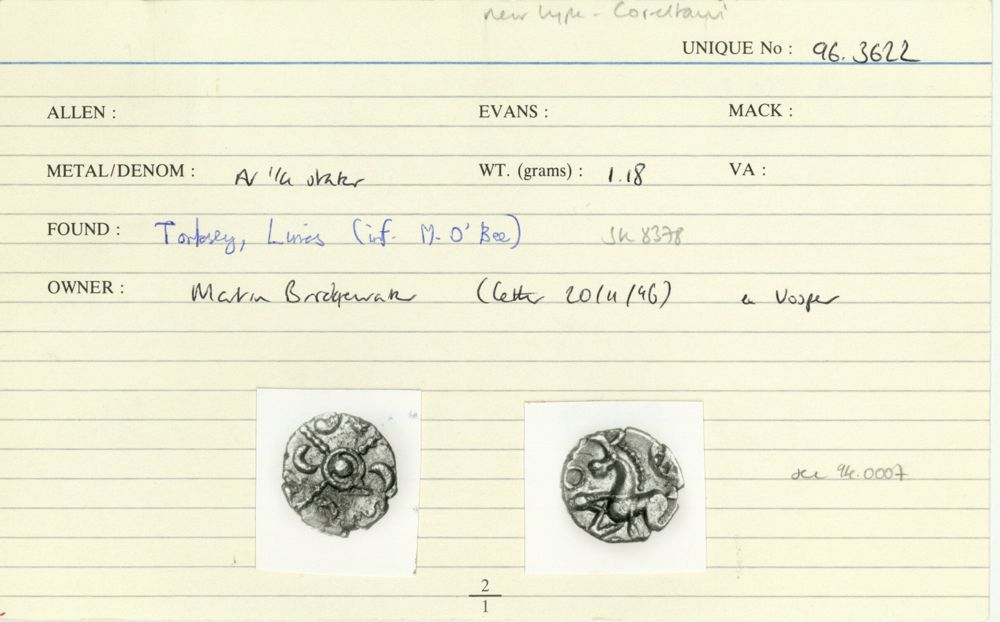 new type - Coreltauvi
UNIQUE No : 96.3622
ALLEN : EVANS : MACK :
METAL/DENOM : Ar 1/4 stater WT. (grams) : 1.18 VA :
FOUND : Torksey, Lincs (inf. M. O'Bee) SK 8378
OWNER : Martin Bridgewater (letter 20/11/96) ex Vosper
see 94.0007
2
1